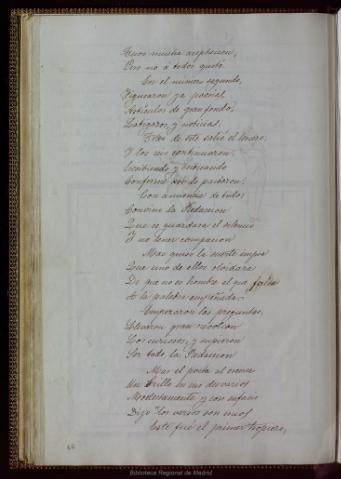 Tuvo mucha aceptacion,
Pero no á todos gustó.
En el numero segundo,
Figuraron ya poesias,
Artículos de gran fondo,
y noticias.
de este salió el tercero,
Y los mas continuaron,
Escribiendo y
Conforme
Con anuencia de todos
Convino la Redaccion
Que se guardara el silencio
Y no tener compasion
Mas quiso la suerte impia
Que uno de ellos olvidara
De que no es hombre el que falta
A la palabra empeñada.
Empezaron las preguntas,
gran revolucion
Los curiosos, y supieron
Ser todo la Redaccion
Mas el poeta al
Modestamente, y con
Dijo "Los versos son mios"
Este fué el primer tropiezo,
Biblioteca Regional de Madrid